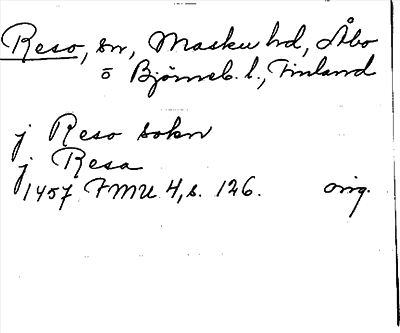 Reso, sn, Masku hd, Åbo
o Björneb. l., Finland
j Reso sokn
j Resa
1457 FMU 4, s. 126. orig.